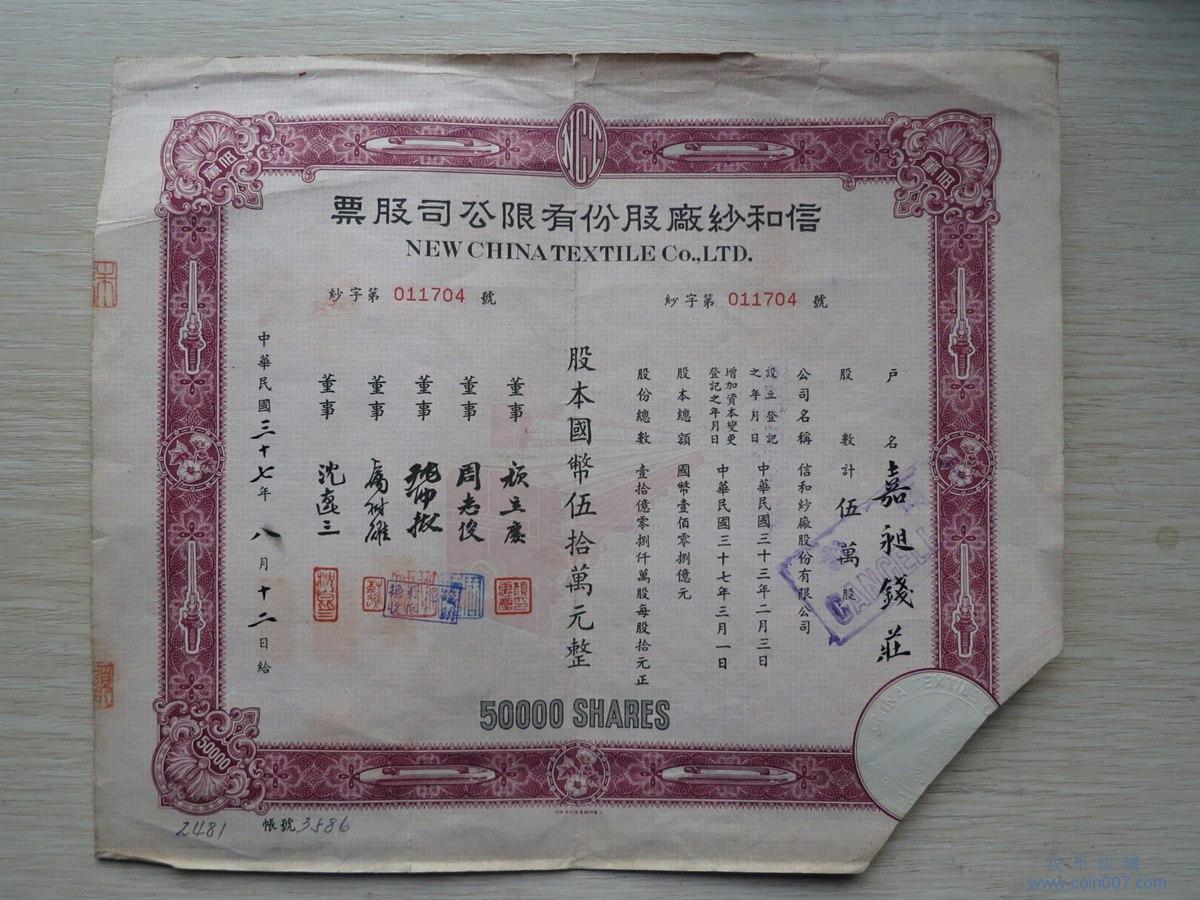 NCT
伍萬
伍萬
信和紗廠股份有限公司股票
NEW CHINA TEXTILE Co.,LTD.
紗字第 011704 號
紗字第 011704 號
戶名 嘉昶錢莊
股數計 伍萬股
公司名稱 信和紗廠股份有限公司
設立登記之年月日 中華民國三十三年二月三日
增加資本變更登記之年月日 中華民國三十七年三月一日
股本總額 國幣壹佰零捌億元
股份總數 壹拾億零捌仟萬股每股拾元正
股本國幣伍拾萬元整
董事
董事 周志俊
董事
董事
董事 沈遠三
中華民國三十七年八月十二日給
CANCELL
50000 SHARES
50000
CHINA TEXTILE
2481
帳號 3586
www.coin007.com